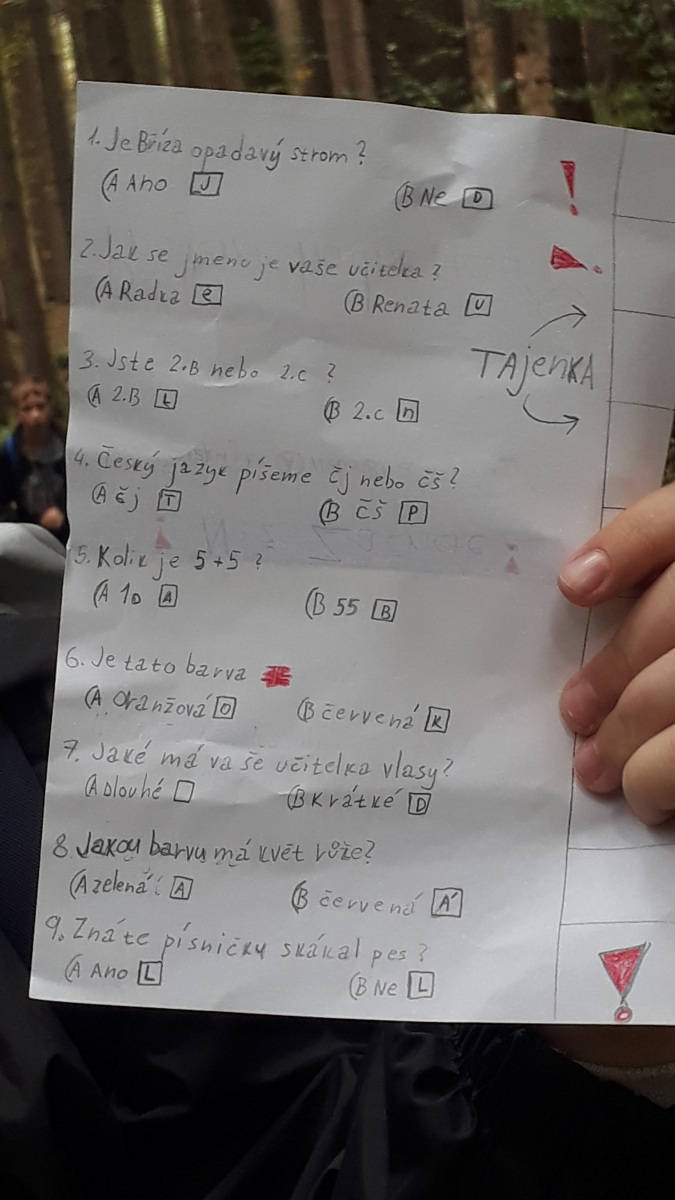 1. Je Bříza opadavý strom?
(A Ano J (B Ne D
2. Jak se jmenuje vaše učitelka?
(A Radka e (B Renata U
TAjenKA
3. Jste 2.B nebo 2.c ?
(A 2.B L (B 2.c n
4. Český jazyk píšeme čj nebo čš?
(A čj T (B čš P
5. Kolik je 5+5 ?
(A 10 A (B 55 B
6. Je tato barva
(A Oranžová O (B červená K
7. Jaké má vaše učitelka vlasy?
(A Dlouhé (B Krátké D
8. Jakou barvu má květ růže?
(A zelená A (B červená Á
9. Znáte písničku skákal pes?
(A Ano L (B Ne L